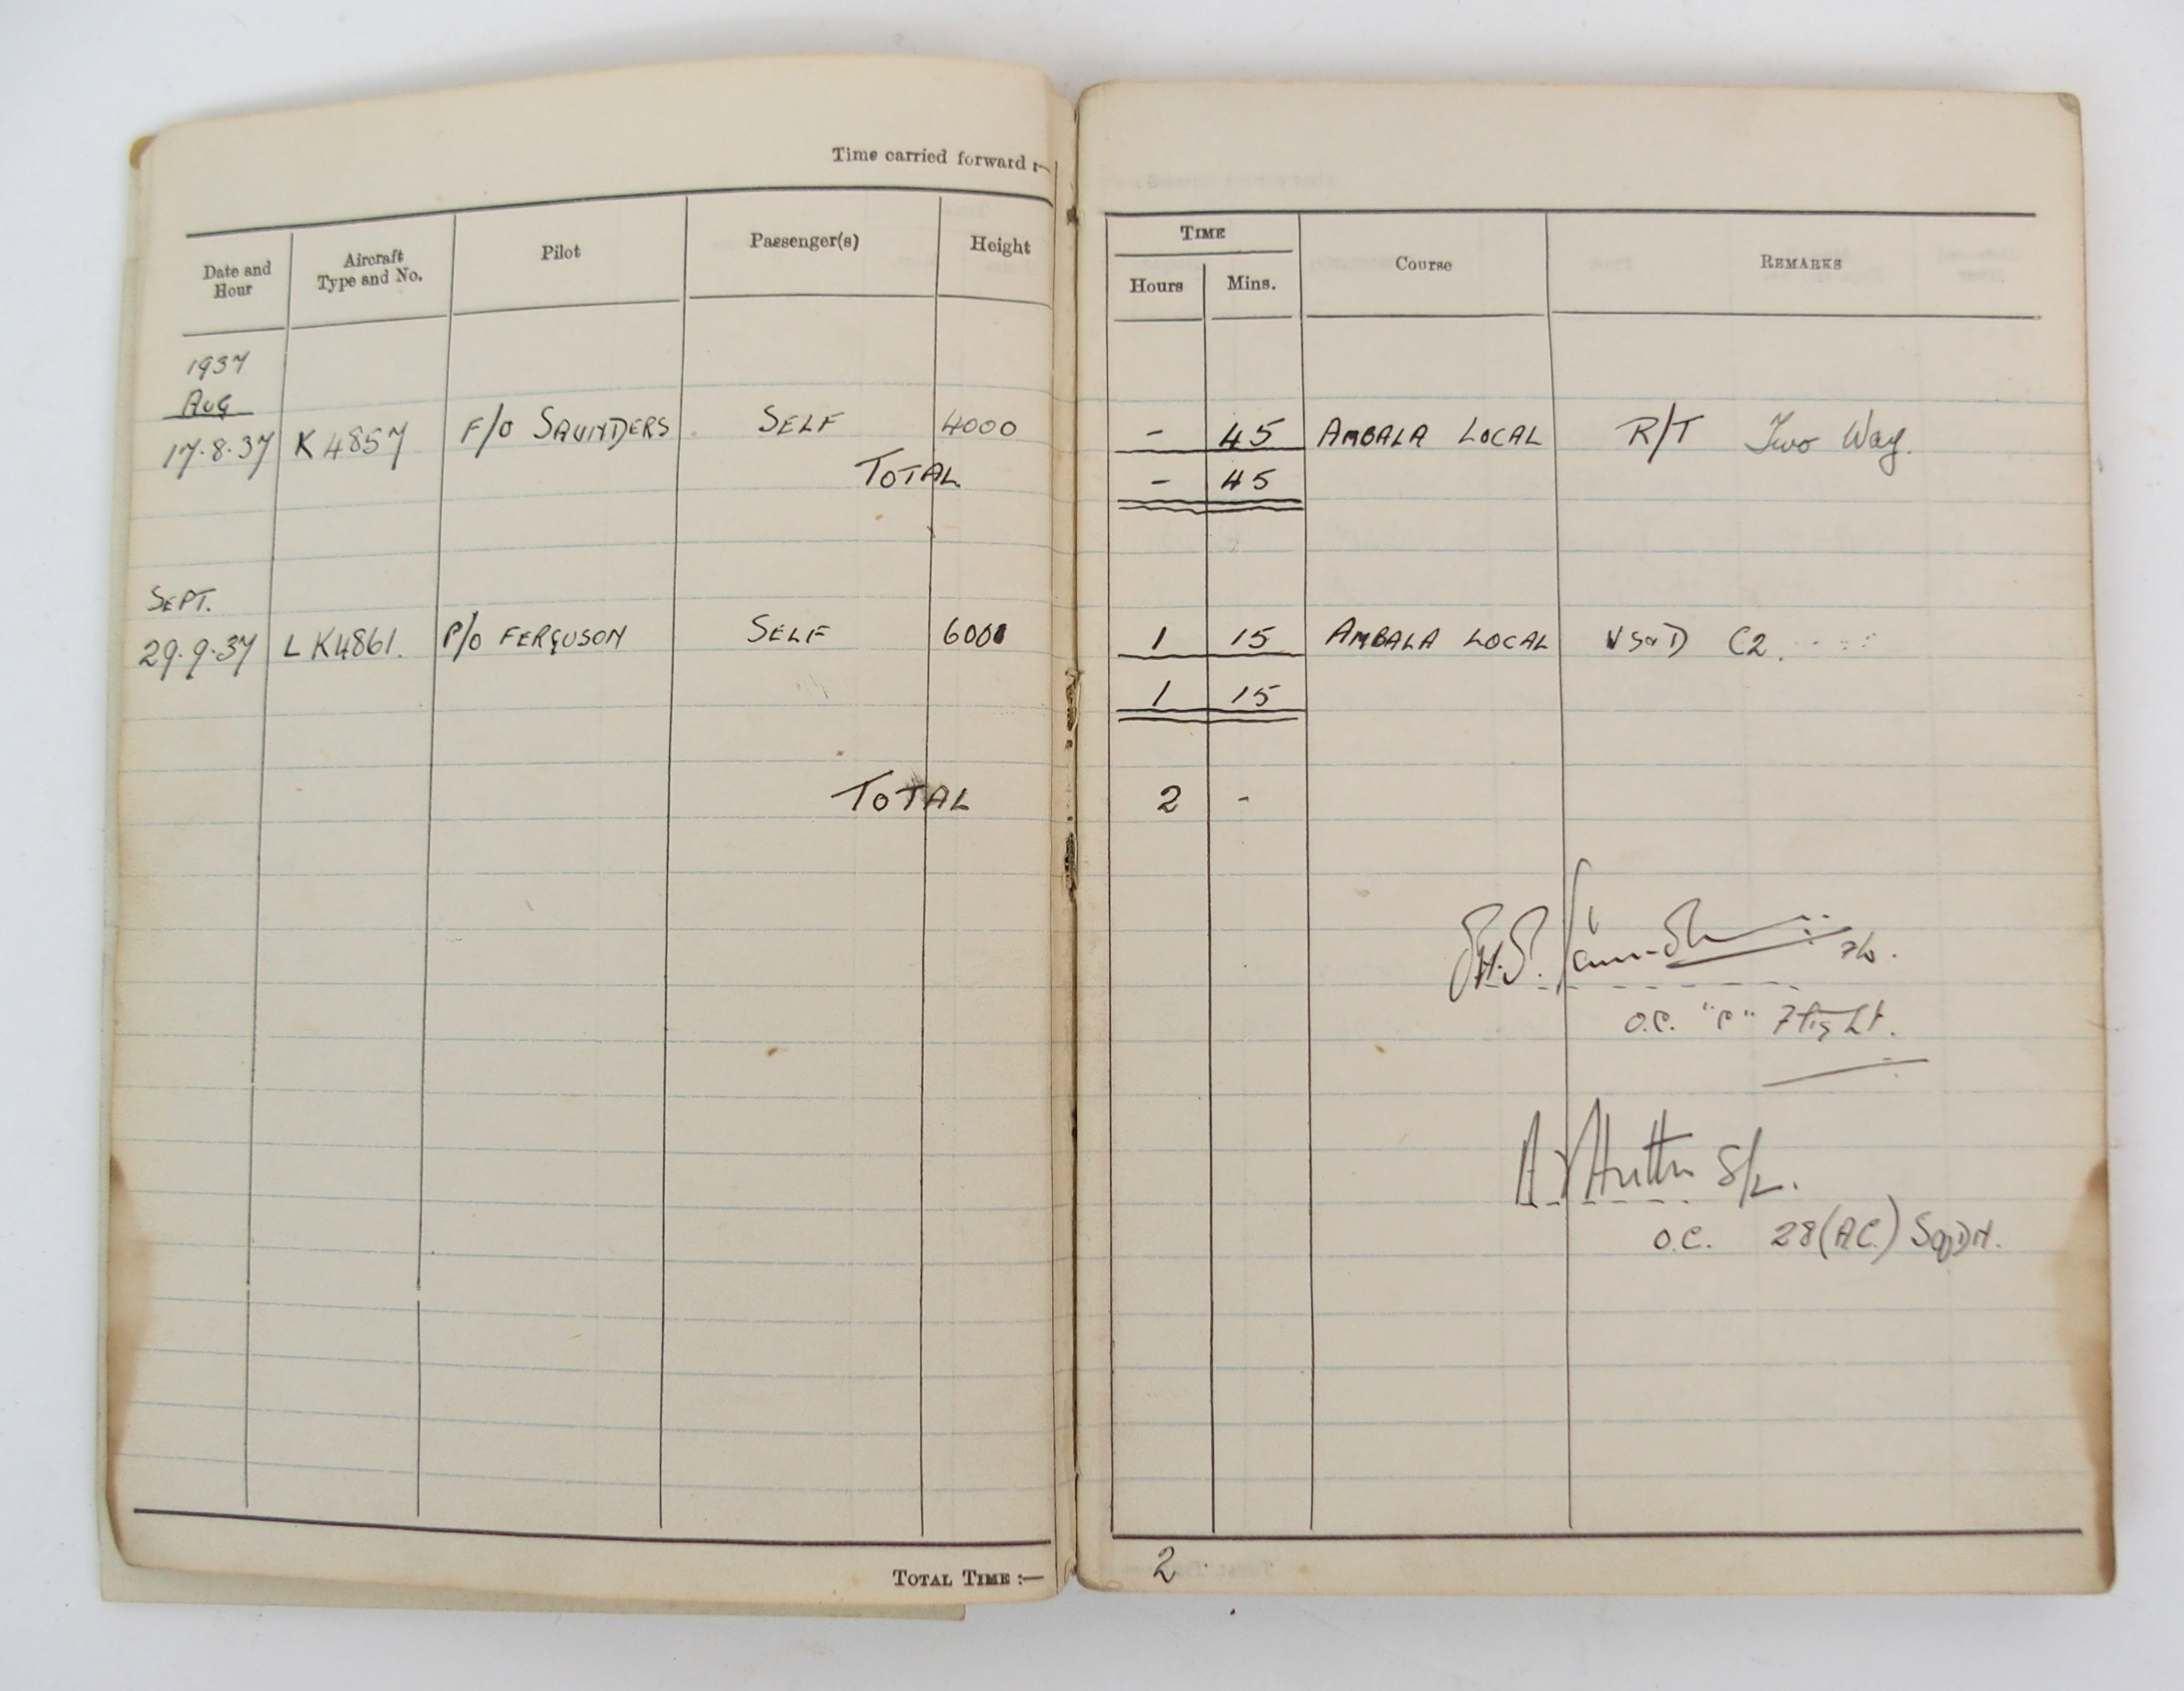 Time carried forward :—
Date and Hour
Aircraft Type and No.
Pilot
Passenger(s)
Height
TIME
Hours
Mins.
Course
REMARKS
1937
AUG
17.8.37 K 4857 F/O SAUNDERS SELF 4000 - 45 AMBALA LOCAL R/T Two Way.
TOTAL - 45
SEPT.
29.9.37 L K4861. P/O FERGUSON SELF 6000 1 15 AMBALA LOCAL C2.
1 15
TOTAL 2 -
F/O.
O.C. "C" Flight.
S/L.
O.C. 28(A.C.) SQDN.
TOTAL TIME :—
2